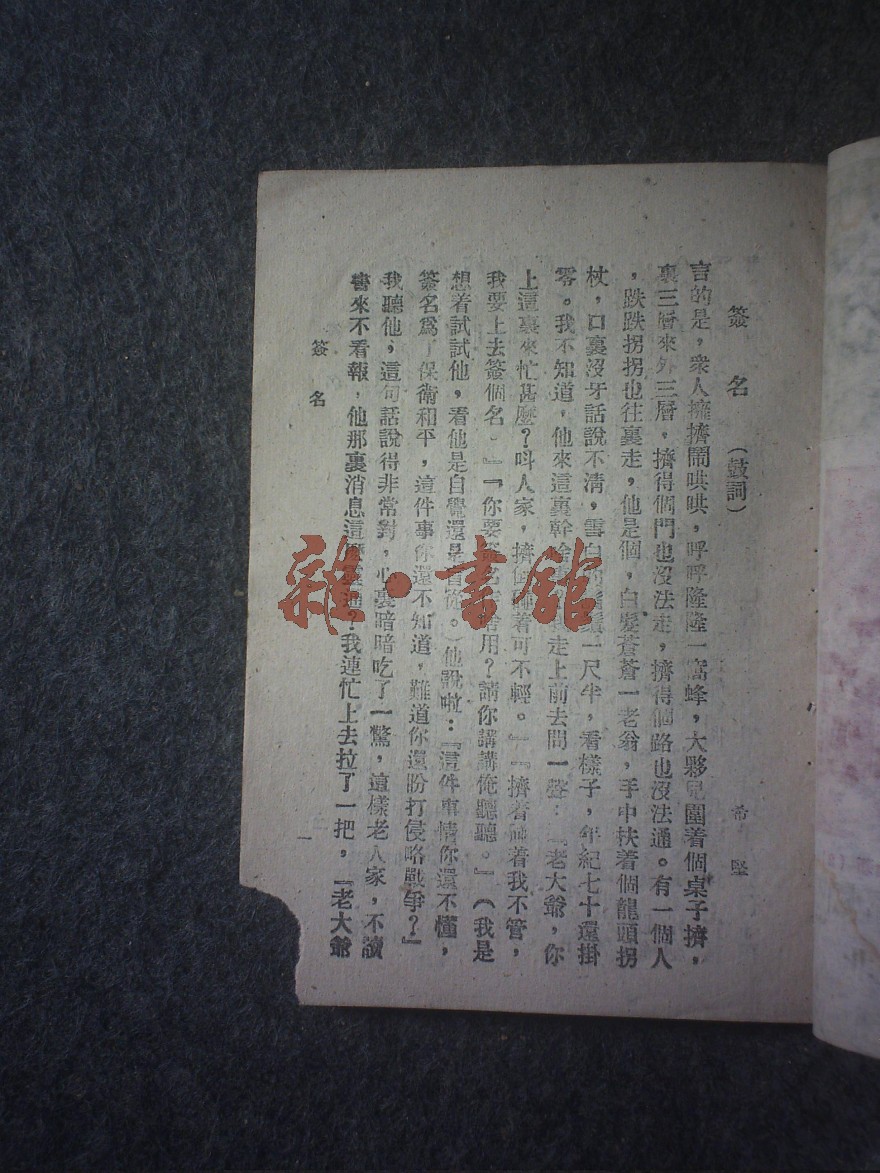 簽名（鼓詞）
希堅
言的是，衆人擁擠鬧哄哄，呼呼隆隆一窩蜂，大夥兒圍着個桌子擠，
裏三層來外三層，擠得個門也沒法走，擠得個路也沒法通。有一個人
，跌跌拐拐也往裏走，他是個，白髮蒼蒼一老翁，手中扶着個龍頭拐
杖，口裏沒牙話說不清，雪白一尺半，看樣子，年紀七十還掛
零。我不知道，他來這裏幹啥走上前去問一聲：『老大爺，你
上這裏來忙甚麼？叫人家，擠着碰着可不輕。』『擠着碰着我不管，
我要上去簽個名。』『你要簽名啥用？請你講講俺聽聽。』（我是
想着試試他，看他是自覺還是盲從。）他說啦：『這件事情你還不懂，
簽名爲了保衛和平，這件事你還不知道，難道你還盼打侵略戰爭？』
我聽他，這句話說得非常對，心裏暗暗吃了一驚，這樣老人家，不讀
書來不看報，他那裏消息這麼靈通？我連忙上去拉了一把，『老大爺
簽名
一
雜·書館